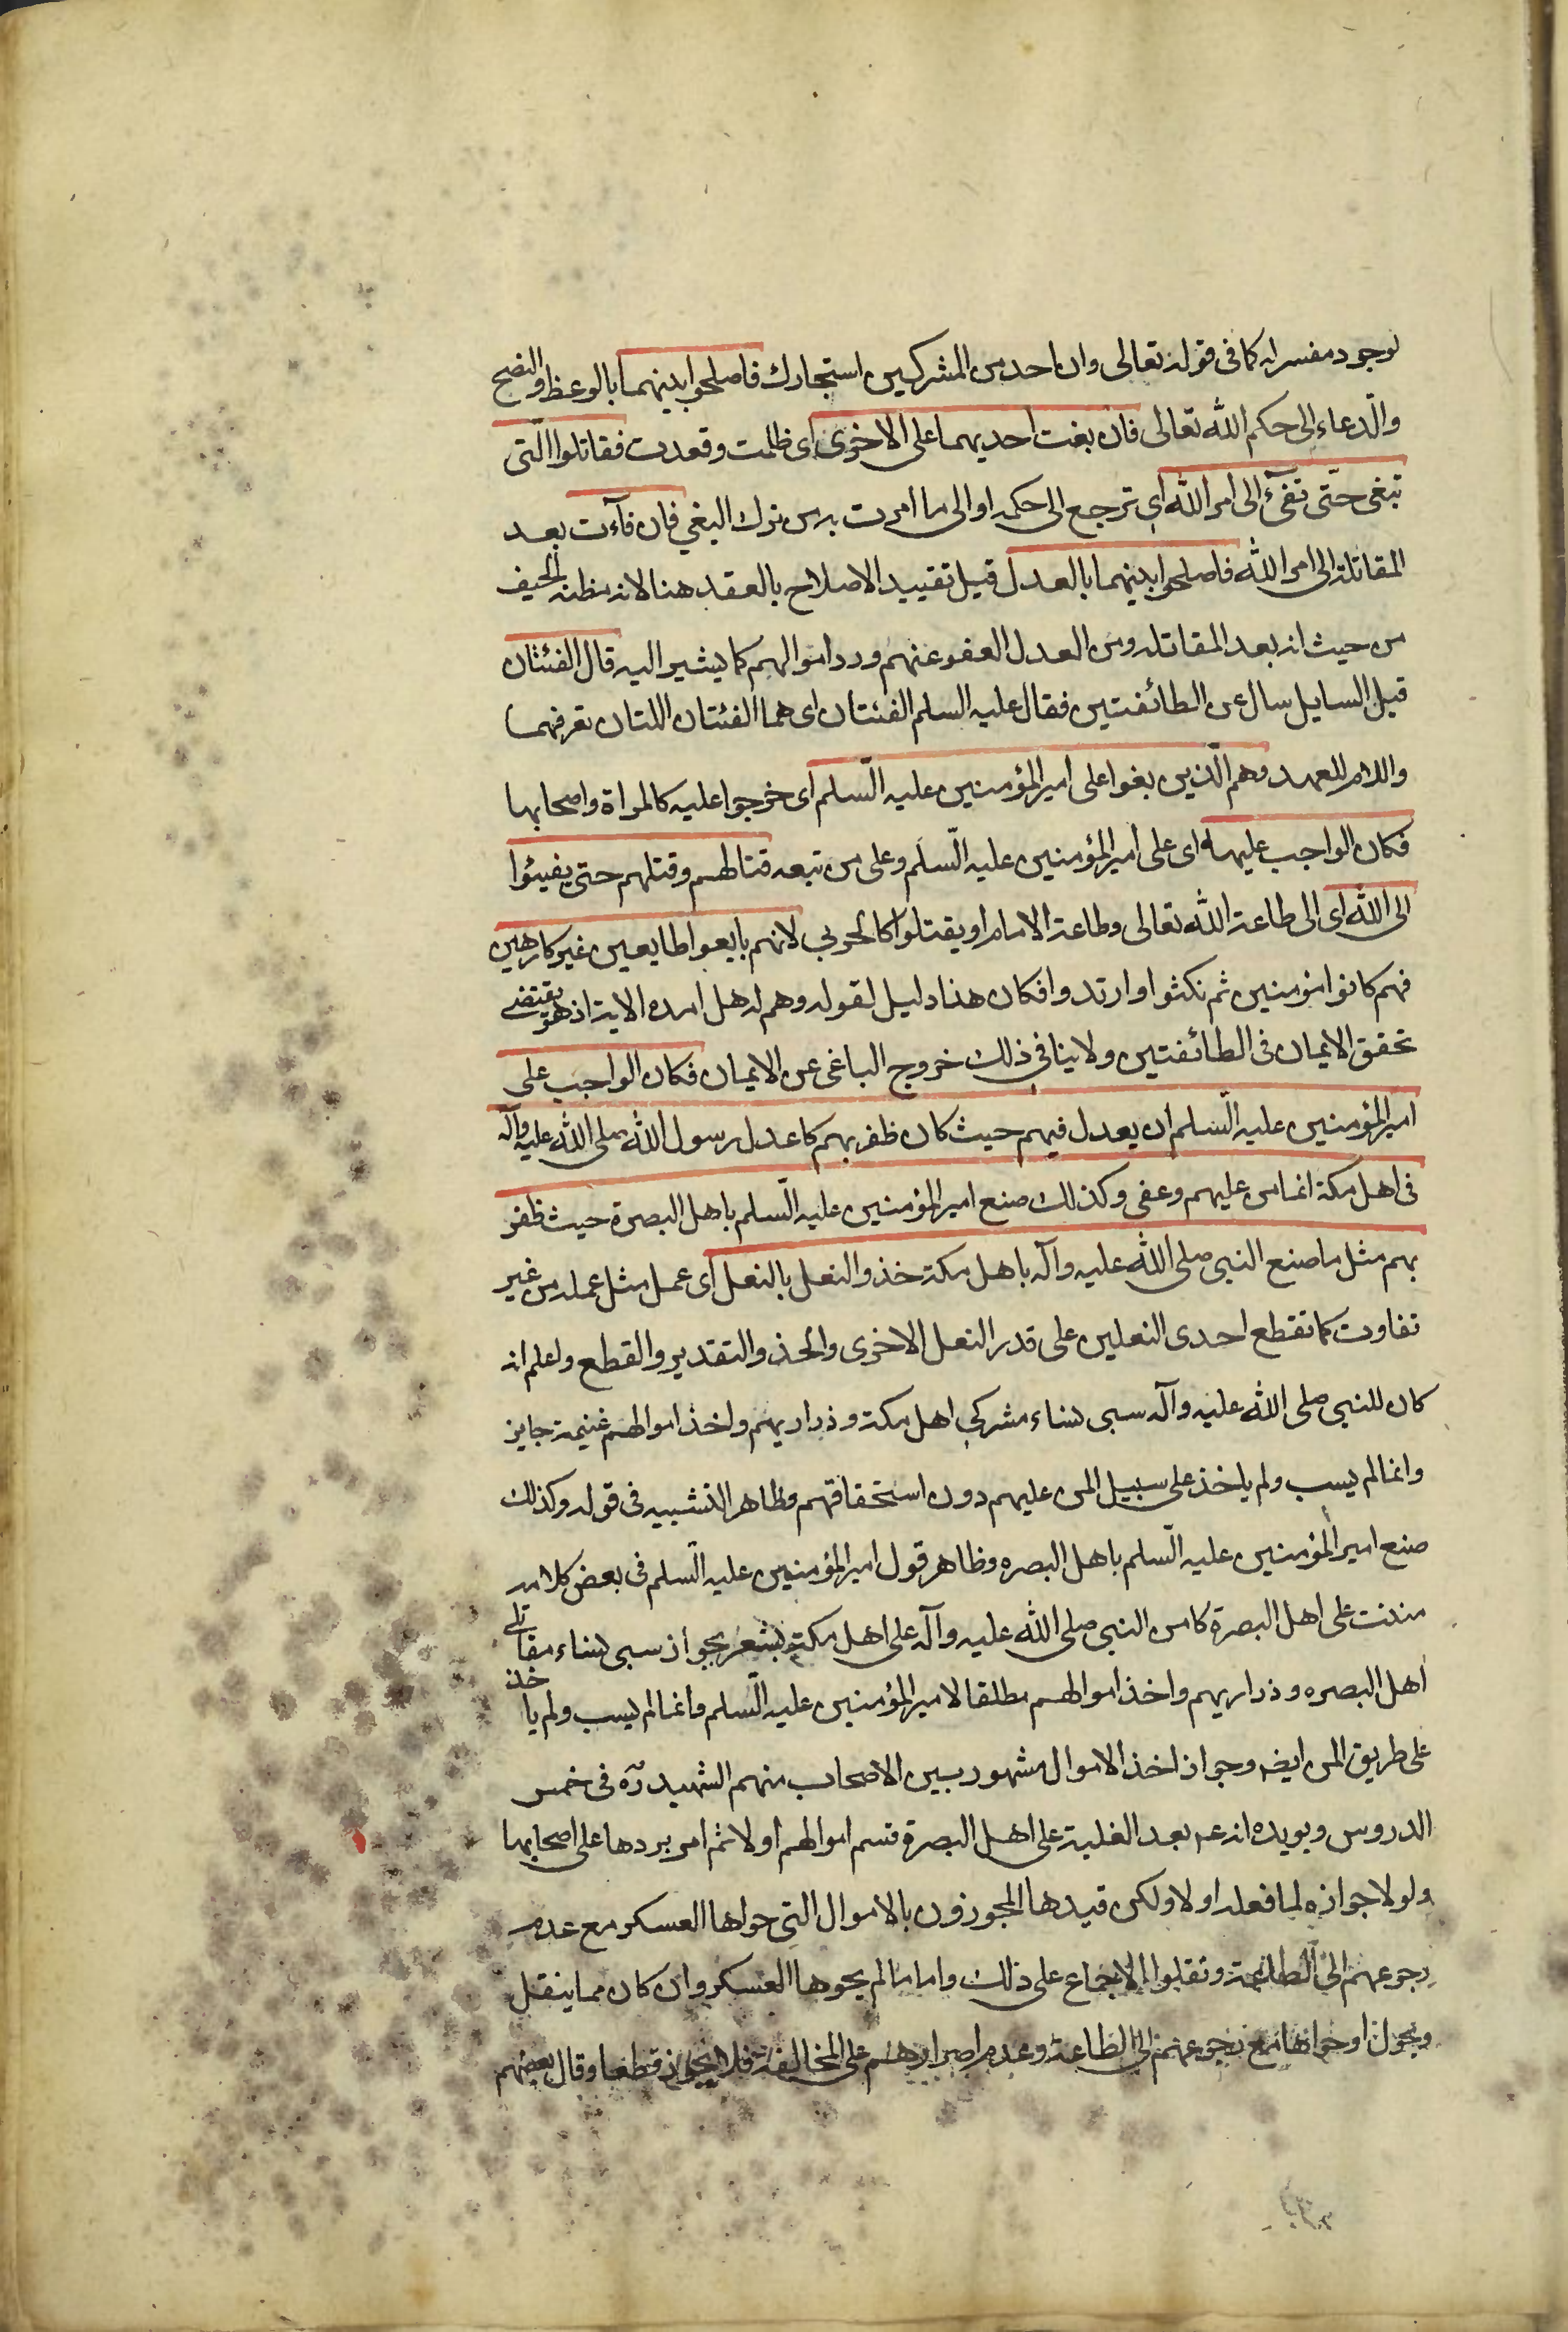 لوجود مفسر له كما فى قوله تعالى وان احد من المشركين استجارك فاصلحوا بينهما بالوعظ والنصح
والدّعاء الى حكم الله تعالى فان بغت احديهما على الاخرى اى ظلمت وتعدت فقاتلوا الّتى
تبغى حتّى تفىٓء الى امر الله اى ترجع الى حكمه او الى ما امرت به من ترك البغي فان فآءت بعد
المقاتلة الى امر الله فاصلحوا بينهما بالعدل قيل تقييد الاصلاح بالعقد هنا لانه مظنة الحيف
من حيث انه بعد المقاتلة ومن العدل العفو عنهم ورد اموالهم كما يشير اليه قال الفئتان
قيل السايل سال عن الطائفتين فقال عليه السلم الفئتان اى هما الفئتان اللتان تعرفهما
واللام للعهد وهم الّذين بغوا على امير المؤمنين عليه السّلم اى خرجوا عليه كالمراة واصحابها
فكان الواجب عليه اى على امير المؤمنين عليه السّلم وعلى من تبعه قتالهم وقتلهم حتى يفيئوا
الى الله اى الى طاعة الله تعالى وطاعة الامام او يقتلوا كالحربي لانهم بايعوا طايعين غير كارهين
فهم كانوا مؤمنين ثم نكثوا وارتدوا فكان هذا دليل لقوله وهم اهل هذه الاية اذ هو يقتضے
تحقق الايمان فى الطائفتين ولا ينافي ذلك خروج الباغى عن الايمان فكان الواجب على
امير المؤمنين عليه السّلم ان يعدل فيهم حيث كان ظفر بهم كما عدل رسول الله صلى الله عليه وآله
فى اهل مكة انما من عليهم وعفى وكذلك صنع امير المؤمنين عليه السّلم باهل البصرة حيث ظفر
بهم مثل ما صنع النبى صلى الله عليه وآله باهل مكة حذو النعل بالنعل اى عمل مثل عمله من غير
تفاوت كما تقطع احدى النعلين على قدر النعل الاخرى والحذو التقدير والقطع واعلم انه
كان للنبى صلى الله عليه وآله سبى نساء مشركي اهل مكة وذراريهم واخذ اموالهم غنيمة جايز
وانما لم يسب ولم ياخذ على سبيل المن عليهم دون استحقاقهم وظاهر التشبيه فى قوله وكذلك
صنع امير المؤمنين عليه السّلم باهل البصره وظاهر قول امير المؤمنين عليه السّلم فى بعض كلامه
مننت على اهل البصرة كما من النبى صلى الله عليه وآله على اهل مكة يشعر بجواز سبى نساء مقاتلى
اهل البصره وذراريهم واخذ اموالهم مطلقا لامير المؤمنين عليه السّلم وانما لم يسب ولم ياخذ
على طريق المن ايضه وجواز اخذ الاموال مشهور بين الاصحاب منهم الشهيد ره فى خمس
الدروس ويويده انه عم بعد الغلبة على اهل البصرة قسم اموالهم اولا ثم امر بردها على اصحابها
ولولا جوازه لما فعله اولا ولكن قيدها المجوزون بالاموال التى حواها العسكر مع عدم
رجوعهم الى الطاعة ونقلوا الاجماع على ذلك واما ما لم يحوها العسكر وان كان مما ينقل
ويحول او حواها مع رجوعهم الى الطاعة وعدم اصرارهم على المخالفة فلا يجوز قطعا وقال بعضهم